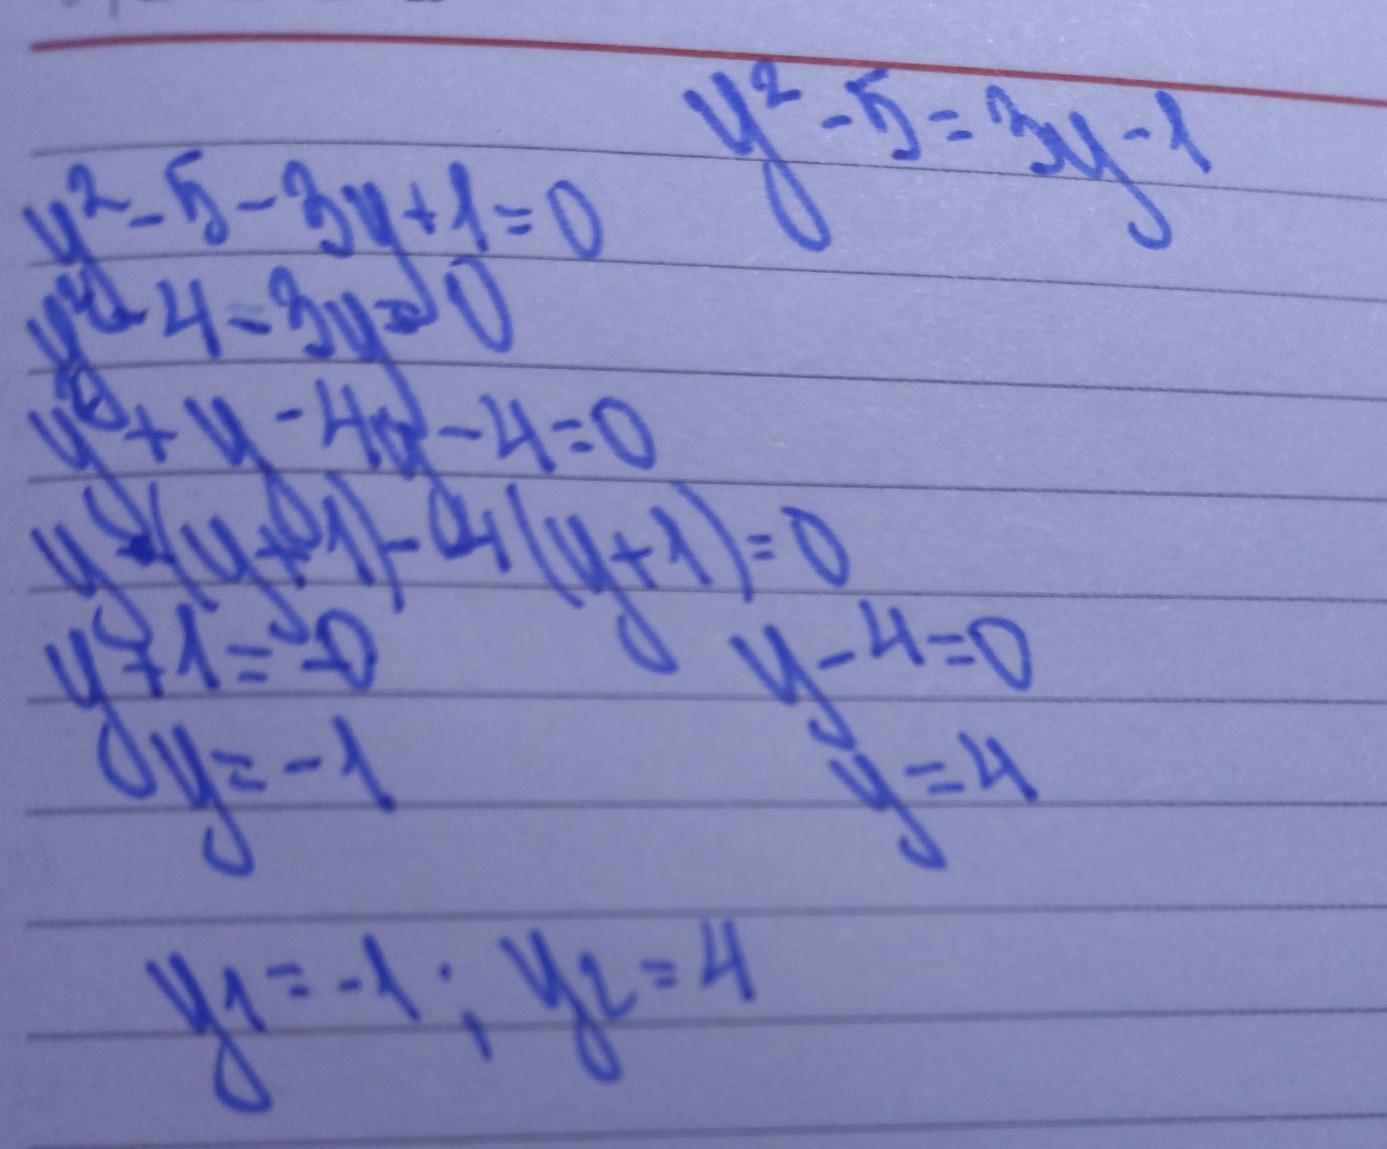 y² - 5 = 3y - 1
y² - 5 - 3y + 1 = 0
y² - 4 - 3y = 0
y² + y - 4y - 4 = 0
y (y + 1) - 4 (y + 1) = 0
y + 1 = 0 y - 4 = 0
y = -1 y = 4
y₁ = -1 ; y₂ = 4